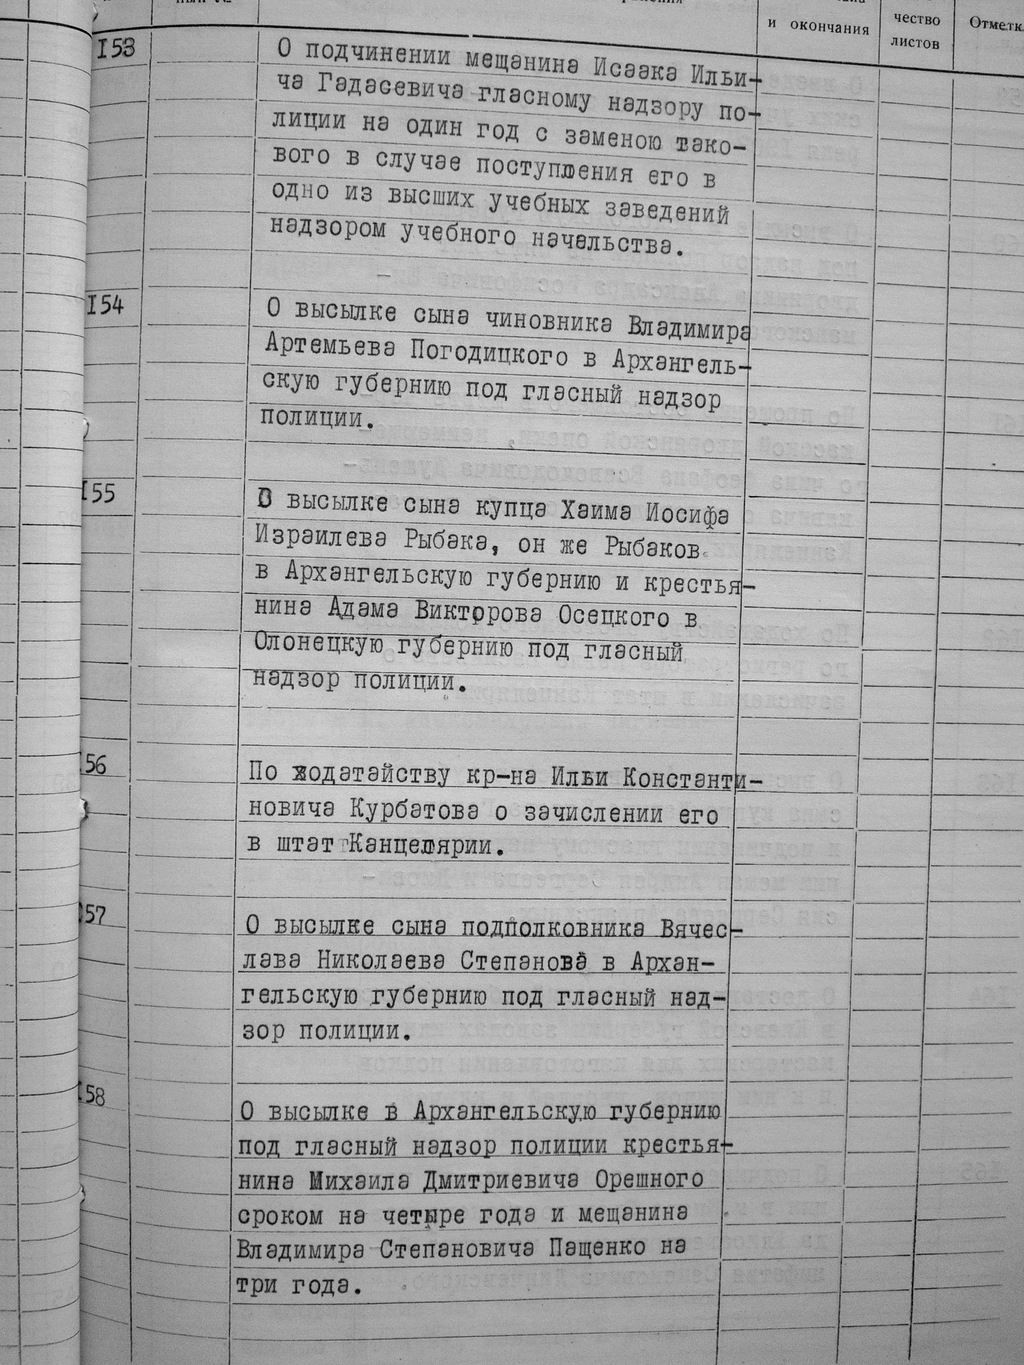 и окончания
чество
листов
153
О подчинении мещанина Исаака Ильи-
ча Гадасевича гласному надзору по-
лиции на один год с заменою тако-
вого в случае поступления его в
одно из высших учебных заведений
надзором учебного начальства.
154
О высылке сына чиновника Владимира
Артемьева Погодицкого в Архангель-
скую губернию под гласный надзор
полиции.
155
О высылке сына купца Хаима Иосифа
Израилева Рыбака, он же Рыбаков
в Архангельскую губернию и крестья-
нина Адама Викторова Осецкого в
Олонецкую губернию под гласный
надзор полиции.
156
По ходатайству кр-на Ильи Константи-
новича Курбатова о зачислении его
в штат Канцелярии.
157
О высылке сына подполковника Вячес-
лава Николаева Степанова в Архан-
гельскую губернию под гласный над-
зор полиции.
158
О высылке в Архангельскую губернию
под гласный надзор полиции крестья-
нина Михаила Дмитриевича Орешного
сроком на четыре года и мещанина
Владимира Степановича Пащенко на
три года.